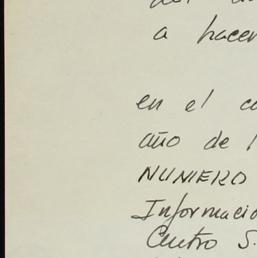 a hacer
en el
año de
NUMERO
Informació
Centro S.